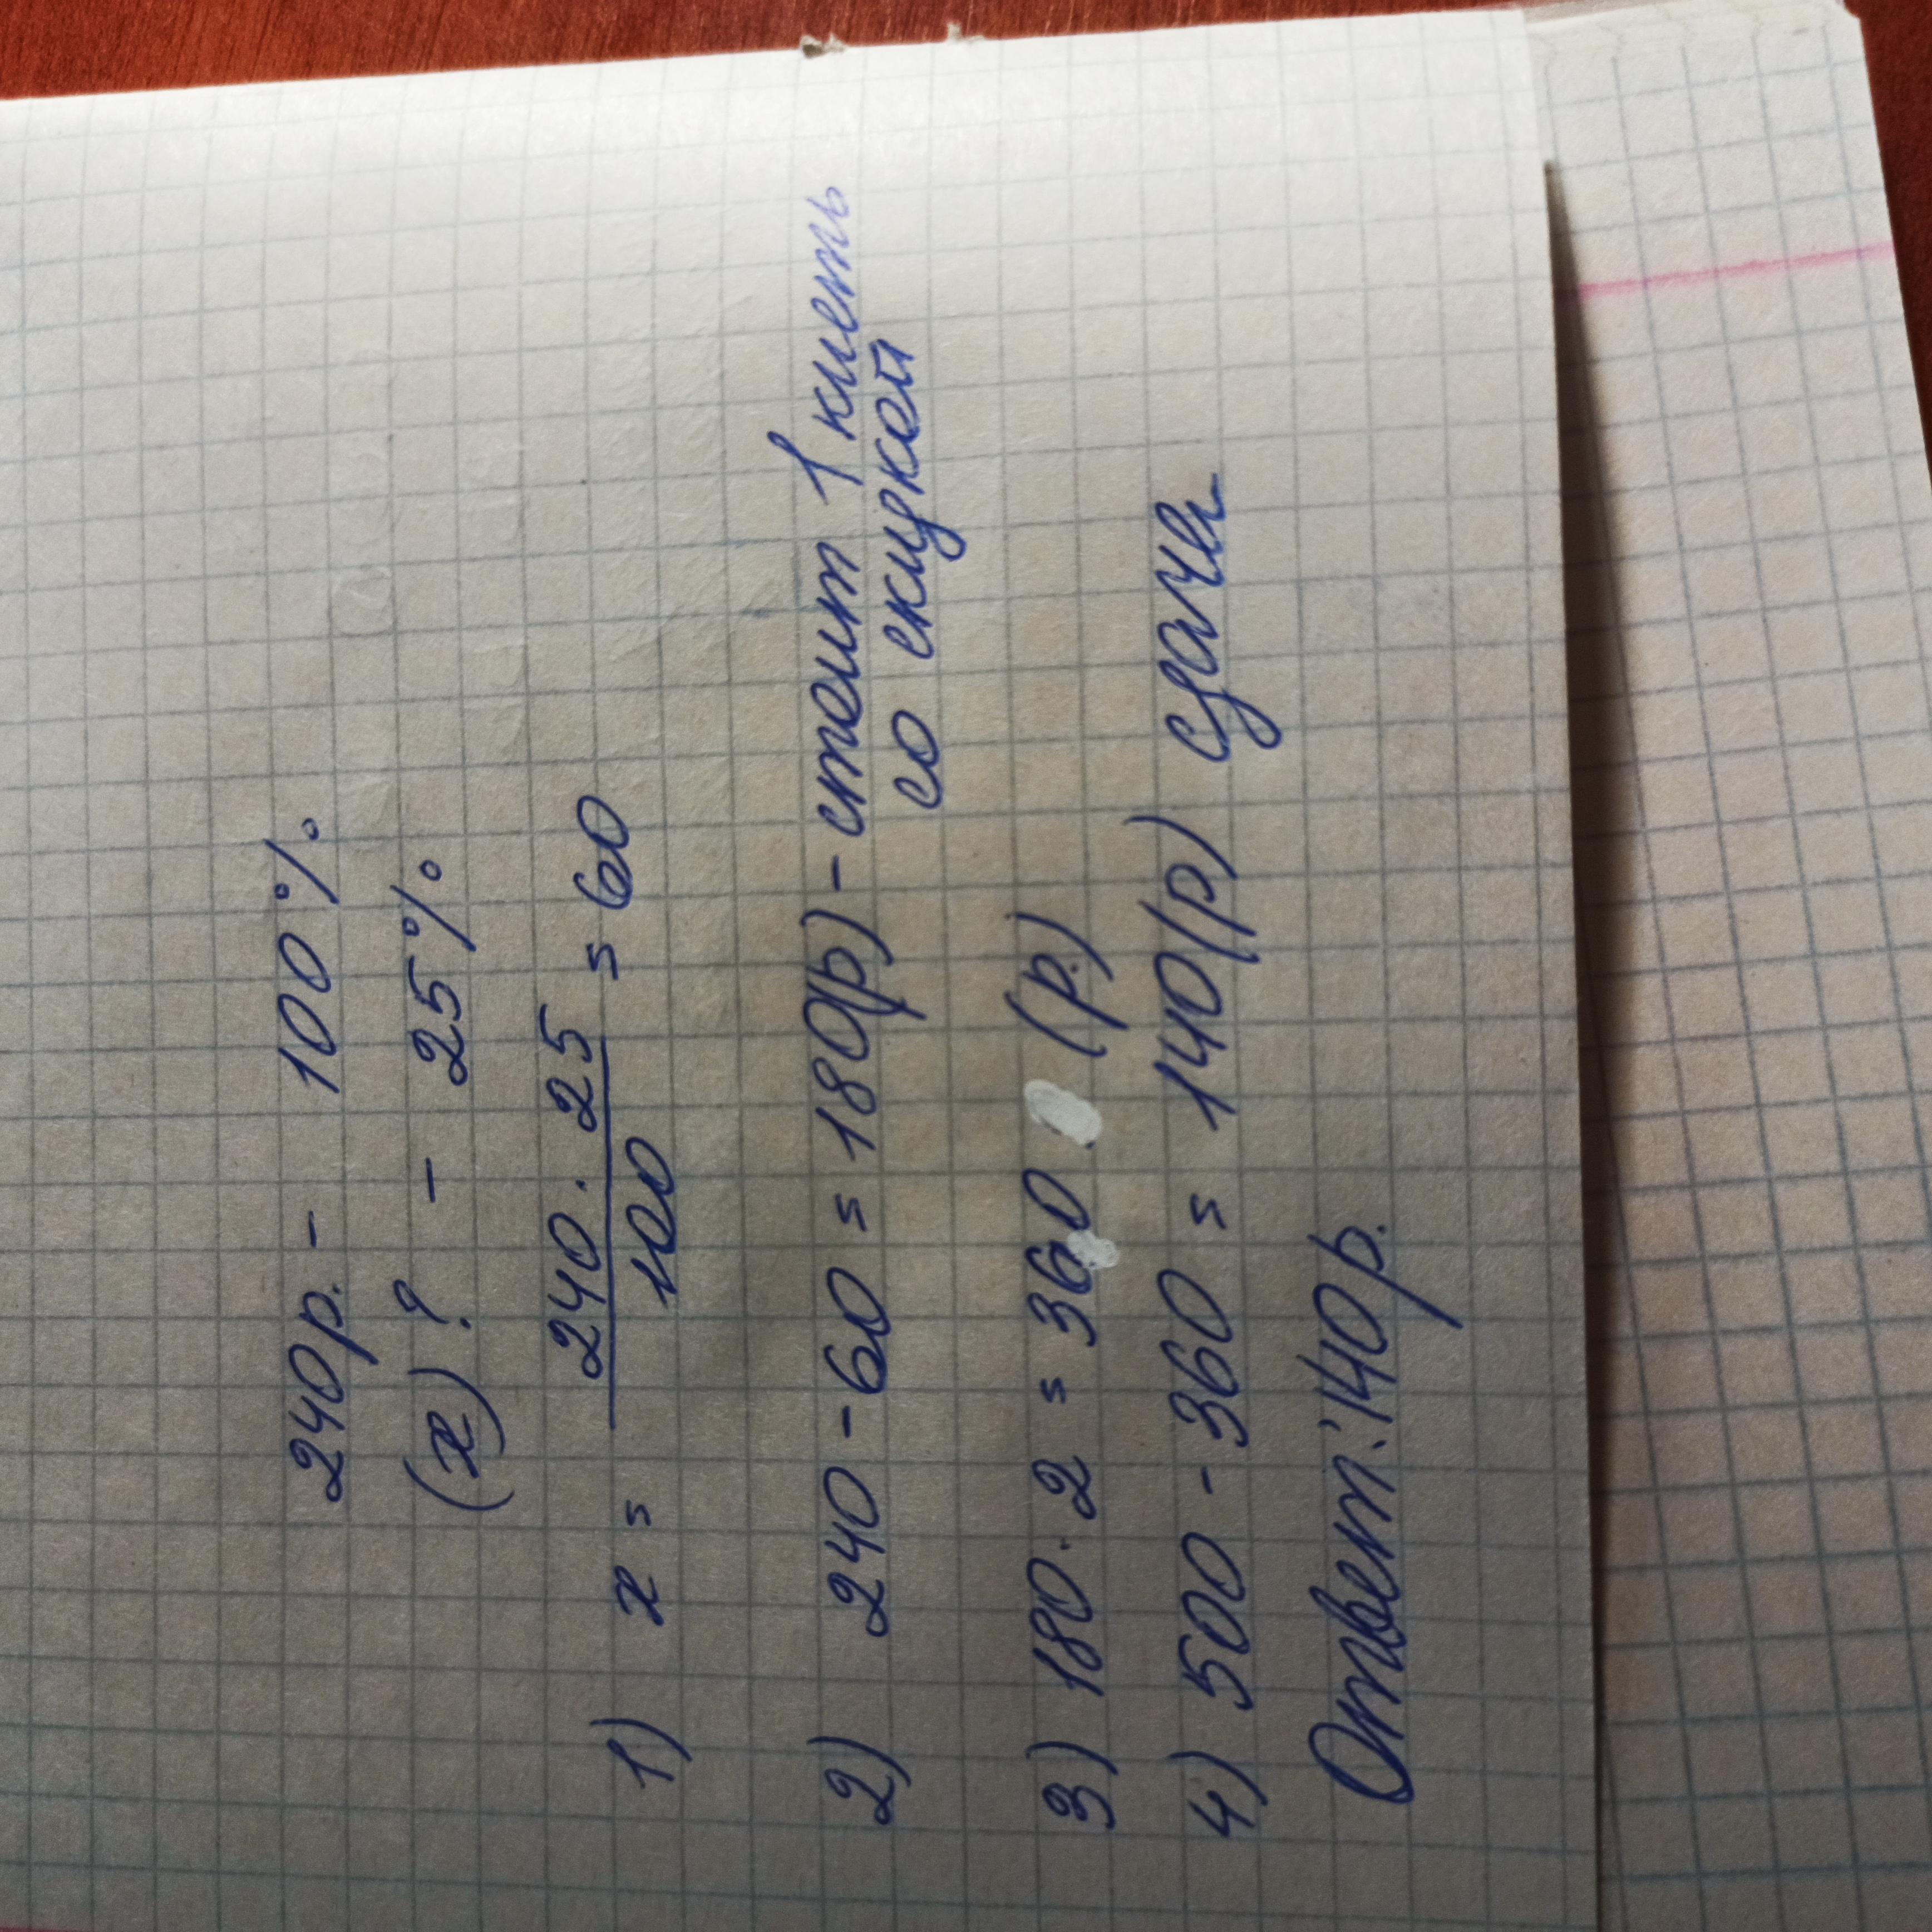 240р. - 100%
(х)? - 25%
1) х = 240 · 25 = 60
100
2) 240 - 60 = 180(р) - стоит 1 кисть
со скидкой
3) 180 · 2 = 360 (р.)
4) 500 - 360 = 140(р) сдачи
Ответ: 140р.